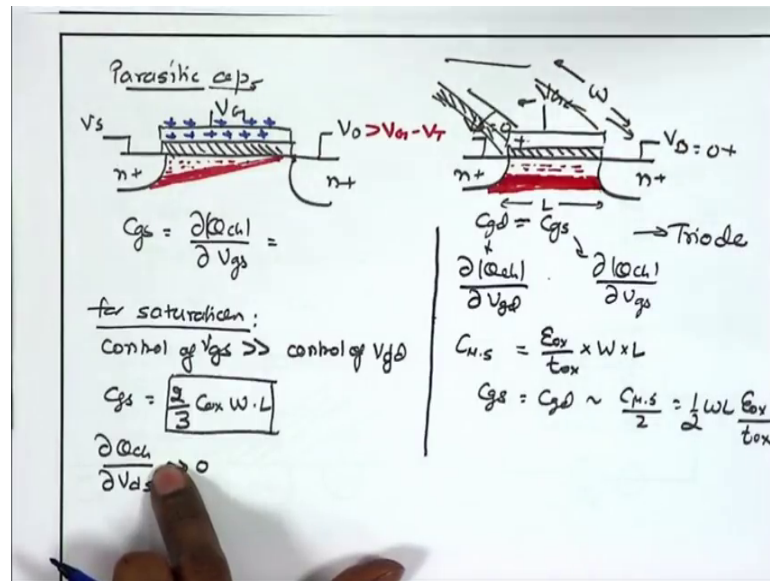 Parasitic caps
VG
VS
VD > VG - VT
n+
n+
Cgs = ∂|Qch| / ∂Vgs =
for saturation:
Control of Vgs >> control of Vgd
Cgs = 2/3 Cox W·L
∂Qch / ∂Vds → 0
W
VD = 0+
n+
n+
L
Cgd = Cgs → Triode
∂|Qch| / ∂Vgd ∂|Qch| / ∂Vgs
CM.S = Eox / tox × W × L
Cgs = Cgd ~ CM.S / 2 = 1/2 WL Eox / tox